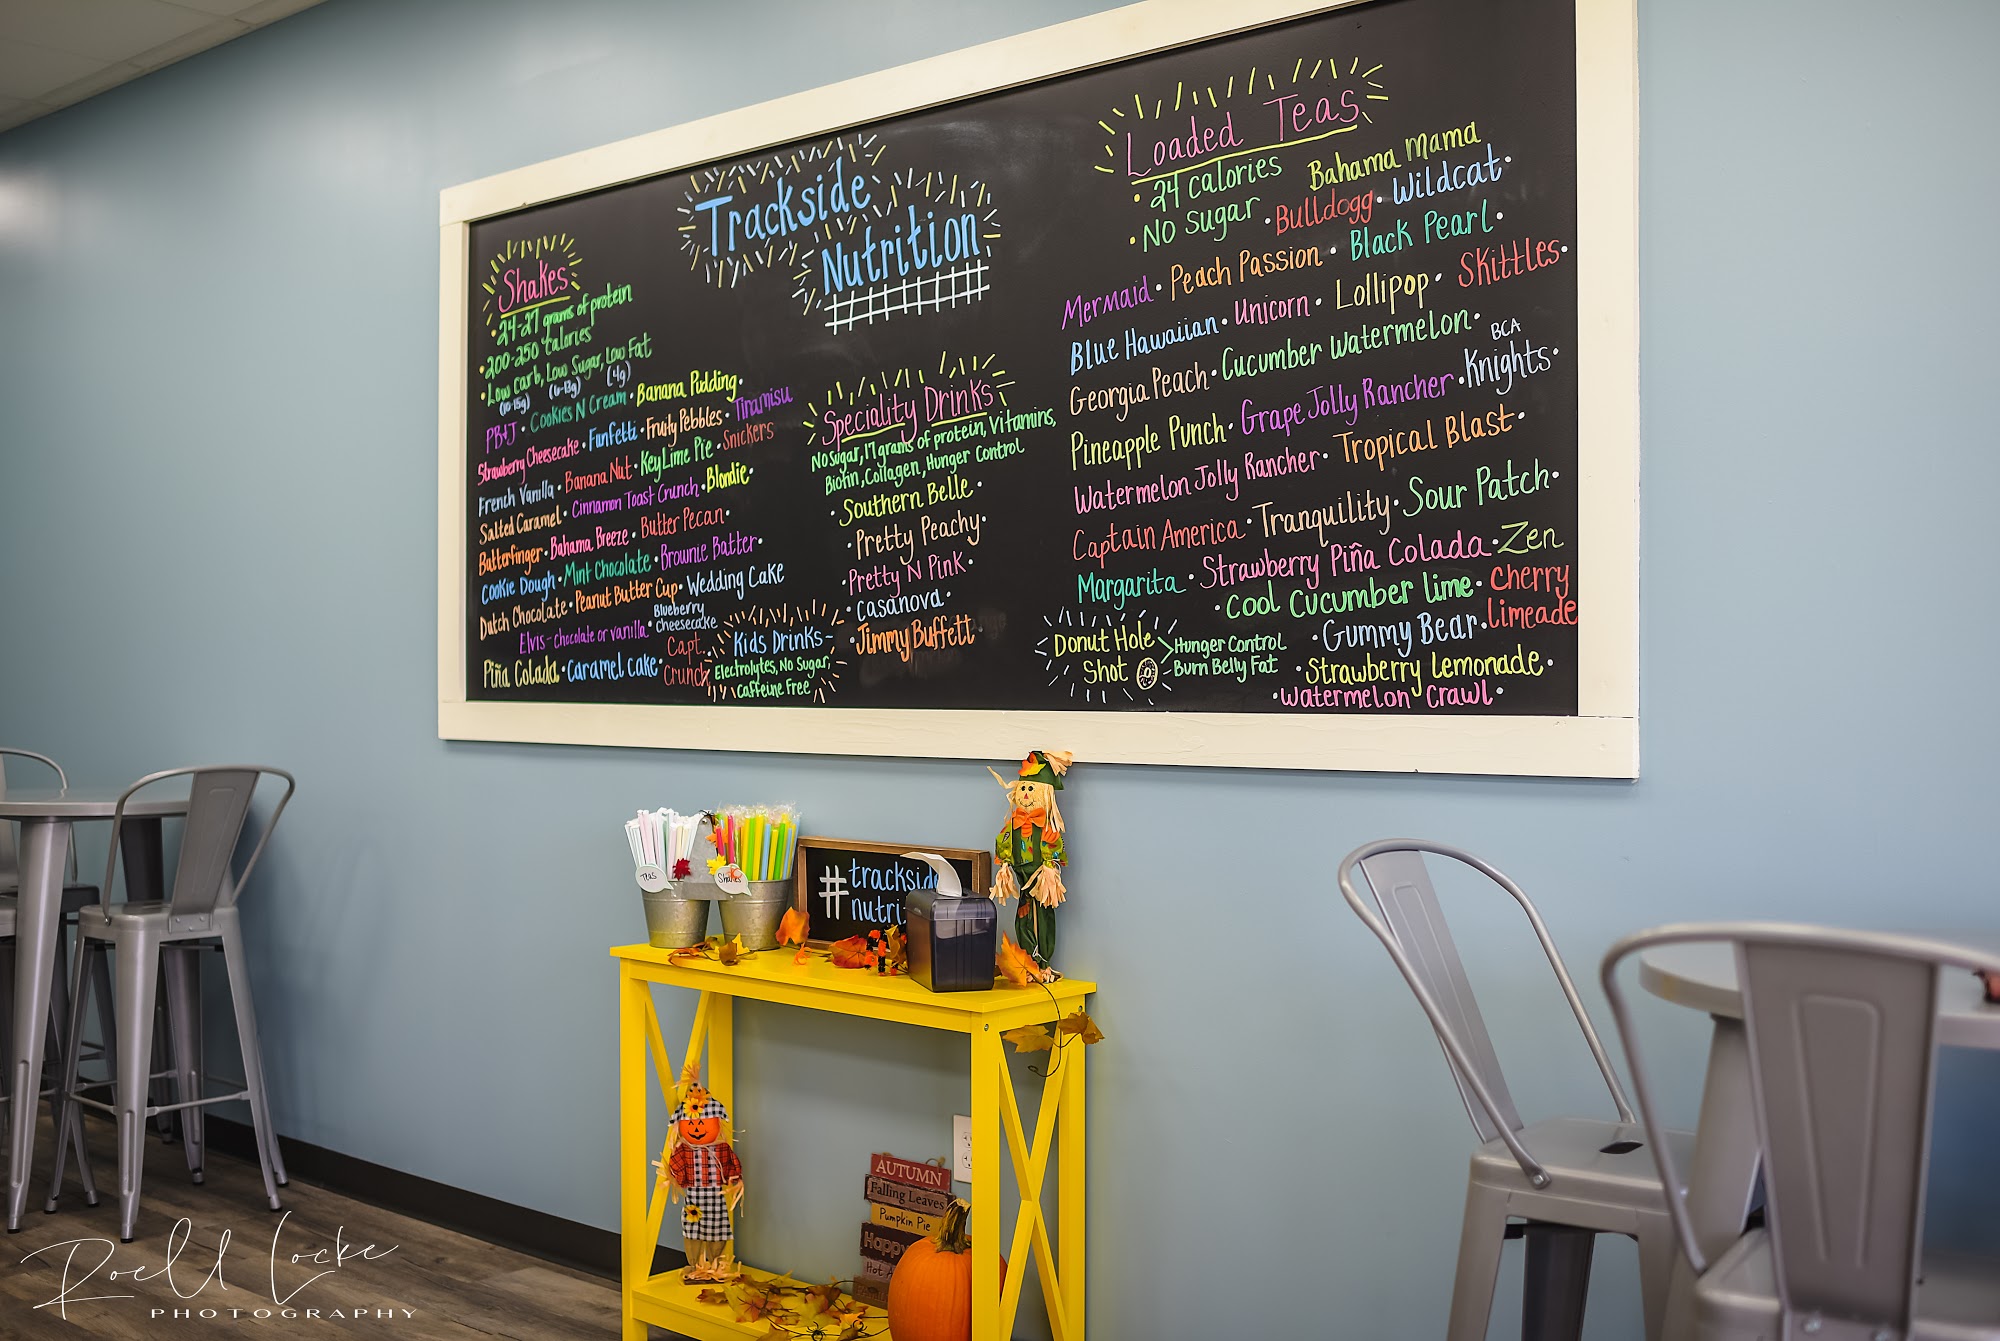 Trackside
Nutrition
Shakes
• 24-27 grams of protein
• 200-250 calories
• Low carb, Low Sugar, Low Fat
(10-15g) (6-13g) (4g)
PB&J • Cookies N Cream • Banana Pudding •
Strawberry Cheesecake • Funfetti • Fruity Pebbles • Tiramisu
French Vanilla • Banana Nut • Key Lime Pie • Snickers
Salted Caramel • Cinnamon Toast Crunch • Blondie •
Butterfinger • Bahama Breeze • Butter Pecan •
Cookie Dough • Mint Chocolate • Brownie Batter •
Dutch Chocolate • Peanut Butter Cup • Wedding Cake
Elvis - chocolate or vanilla • Blueberry
Cheesecake
Piña Colada • Caramel Cake • Capt.
Crunch
Kids Drinks -
Electrolytes, No Sugar,
Caffeine Free
Speciality Drinks
No Sugar, 17 grams of protein, Vitamins,
Biotin, Collagen, Hunger Control
• Southern Belle •
• Pretty Peachy •
• Pretty N Pink •
• Casanova •
• Jimmy Buffett
Loaded Teas
• 24 calories
• No Sugar
Bahama Mama
• Bulldogg • Wildcat •
Mermaid • Peach Passion • Black Pearl •
Blue Hawaiian • Unicorn • Lollipop • Skittles •
Georgia Peach • Cucumber Watermelon •
BCA
Pineapple Punch • Grape Jolly Rancher • Knights •
Watermelon Jolly Rancher • Tropical Blast •
Captain America • Tranquility • Sour Patch •
Margarita • Strawberry Piña Colada • Zen
• Cool Cucumber Lime • Cherry
Limeade
• Gummy Bear •
• Strawberry Lemonade •
• Watermelon Crawl •
Donut Hole
Shot
Hunger Control
Burn Belly Fat
Teas
Shakes
#
AUTUMN
Falling Leaves
Pumpkin Pie
Happy
Hot
Roeld Locke
PHOTOGRAPHY